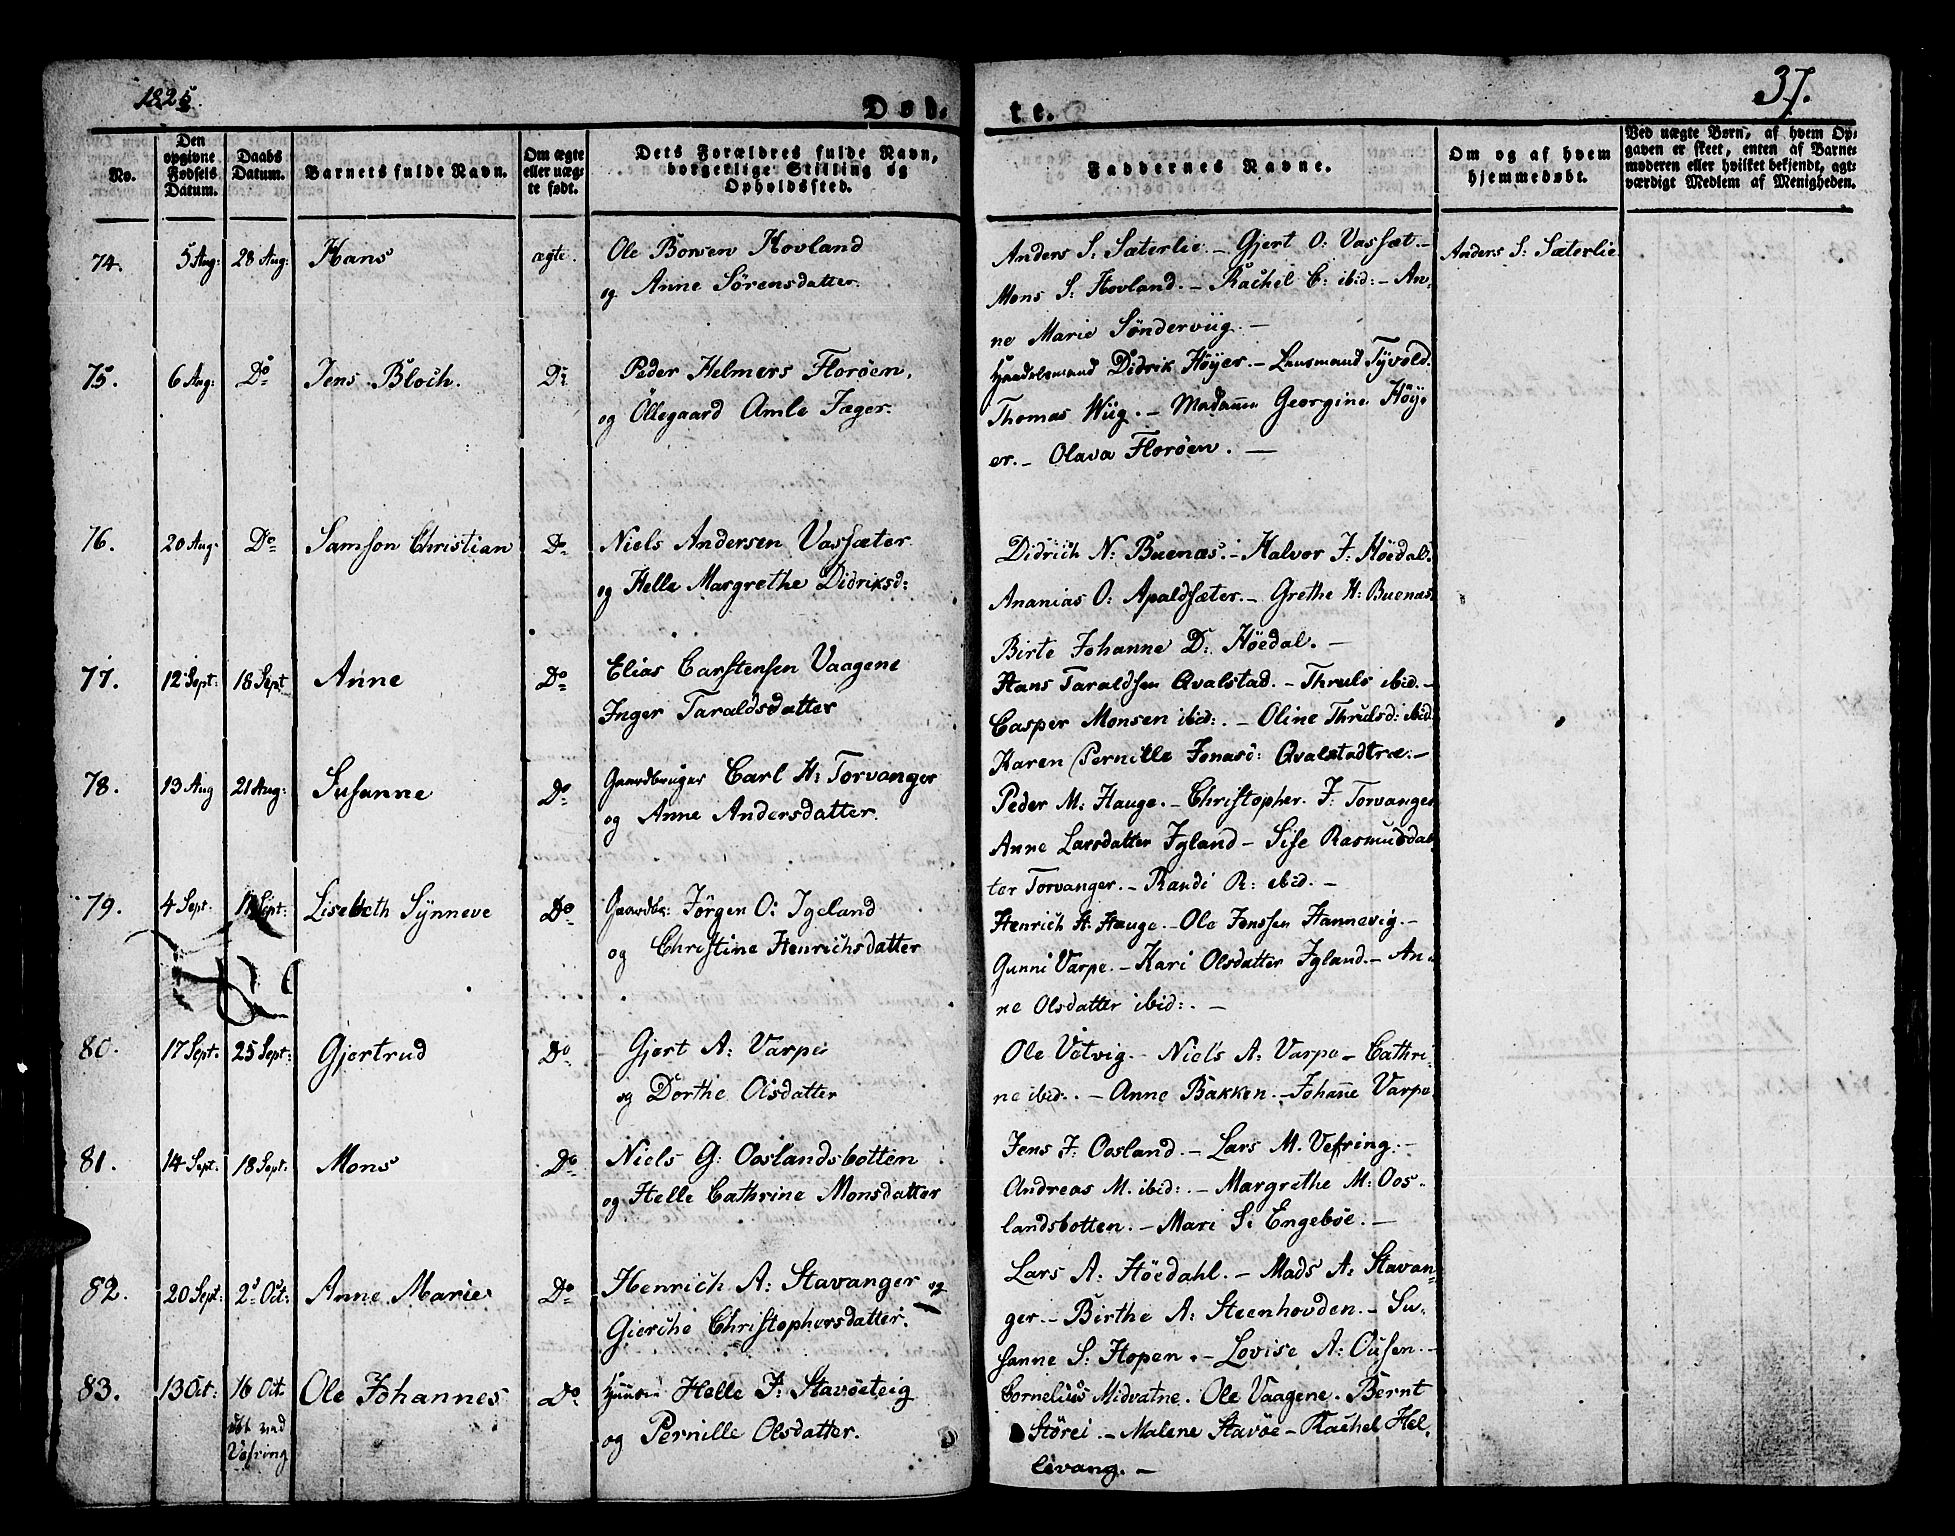 1825.
Døb-
te.
37.
No.
Den opgivne Fødsels Datum.
Daabs Datum.
Barnets fulde Navn.
Om ægte eller uægte født.
Dets Forældres fulde Navn, borgerlige Stilling og Opholdssted.
Faddernes Navne.
Om og af hvem hjemmedøbt.
Ved uægte Børn, af hvem Opgaven er skeet, enten af Barnemoderen eller hvilket bekjendt, agtværdigt Medlem af Menigheden.
74. 5 Aug: 28 Aug: Hans ægte.
Ole Borsen Hovland
og Anne Sörensdatter.
Anders S. Sæterlie. – Gjert O: Vassæt. –
Mons S: Hovland. – Rachel C: ibid: – An-
ne Marie Sönderviig. –
Anders S: Sæterlie.
75. 6 Aug: Do Jens Bloch. Do
Peder Helmers Florøen,
og Ollegaard Amle Jæger.
Handelsmand Didrik Höyer. – Lensmand Tyvold.
Thomas Wiig. – Madamm Georgine Höy-
er. – Olava Florøen. –
76. 20 Aug: Do Samson Christian Do
Niels Andersen Vassæter
og Helle Margrethe Didriksd:
Didrich N: Buenæs. – Halvor J: Höedal.
Ananias O: Apaldsæter. – Grethe H: Buenæs.
Birte Johanne D: Höedal. –
77. 12 Sept: 18 Sept Anne Do
Elias Carstensen Vaagene
Inger Taraldsdatter
Hans Taraldsen Qvalstad. – Thruls ibid. –
Casper Monsen ibid: . – Oline Thrulsd: ibid:
Karen Pernille Jonasd: Qvalstadtræ. –
78. 13 Aug 21 Aug: Susanne Do
Gaardbruger Carl H: Torvanger
og Anne Andersdatter.
Peder M: Hauge. – Christopher J: Torvanger
Anne Larsdatter Igland – Sise Rasmusdat-
ter Torvanger. – Randi R: ibid. –
79. 4 Sept. 11 Sept: Lisebeth Synneve Do
Gaardbr: Jörgen O: Igeland
og Christine Henrichsdatter
Henrich H: Hauge. – Ole Jenssen Hannevig. –
Gunni Varpe. – Kari Olsdatter Igland. – An-
ne Olsdatter ibid: . –
80. 17 Sept: 25 Sept: Gjertrud Do
Gjert A: Varpe
og Dorthe Olsdatter
Ole Vetvig. – Niels A: Varpe – Cathri-
ne ibid: . – Anne Bakken. – Johane Varpe
81. 14 Sept. 18 Sept. Mons Do
Niels G: Ooslandsbotten
og Helle Cathrine Monsdatter
Jens J: Oosland. – Lars M. Vefring. –
Andreas M. ibid: . – Margrethe M: Oos-
landsbotten. – Mari S: Engeböe. –
82. 20 Sept: 2 Oct: Anne Marie Do
Henrich A: Stavanger og
Gierche Christophersdatter.
Lars A: Höedahl. – Mads A: Stavan-
ger. – Birthe A: Steenhovden. – Su-
sanne S: Hopen. – Lovise A: Ousen. –
83. 13 Oct: 16 Oct. Ole Johannes Do
Huusm Helle J: Stavöeteig
og Pernille Olsdatter.
Cornelius Midvatne. Ole Vaagene. Bernt
Störei. – Malene Stavöe – Rachel Hel-
levang. –
ved
Vefring